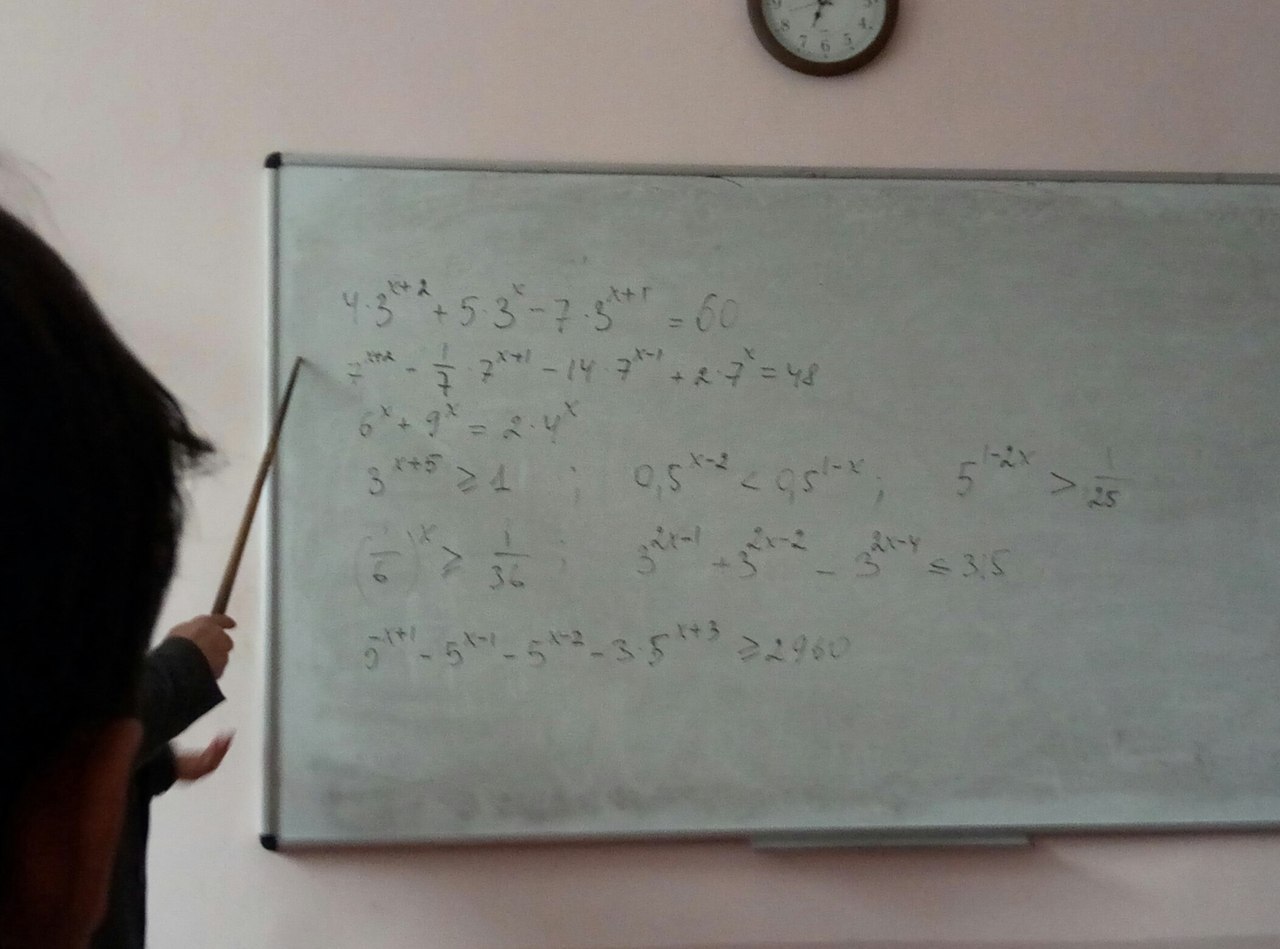 9 8 7 6 5 4 3
4·3^{x+2} + 5·3^x - 7·3^{x+1} = 60
7^{x+2} - 1/7·7^{x+1} - 14·7^{x-1} + 2·7^x = 48
6^x + 9^x = 2·4^x
3^{x+5} ≥ 1 ; 0,5^{x-2} < 0,5^{1-x} ; 5^{1-2x} > 1/25
(1/6)^x ≥ 1/36 ; 3^{2x-1} + 3^{2x-2} - 3^{2x-4} ≤ 315
5^{-x+1} - 5^{x-1} - 5^{x-2} - 3·5^{x+3} ≥ 2960